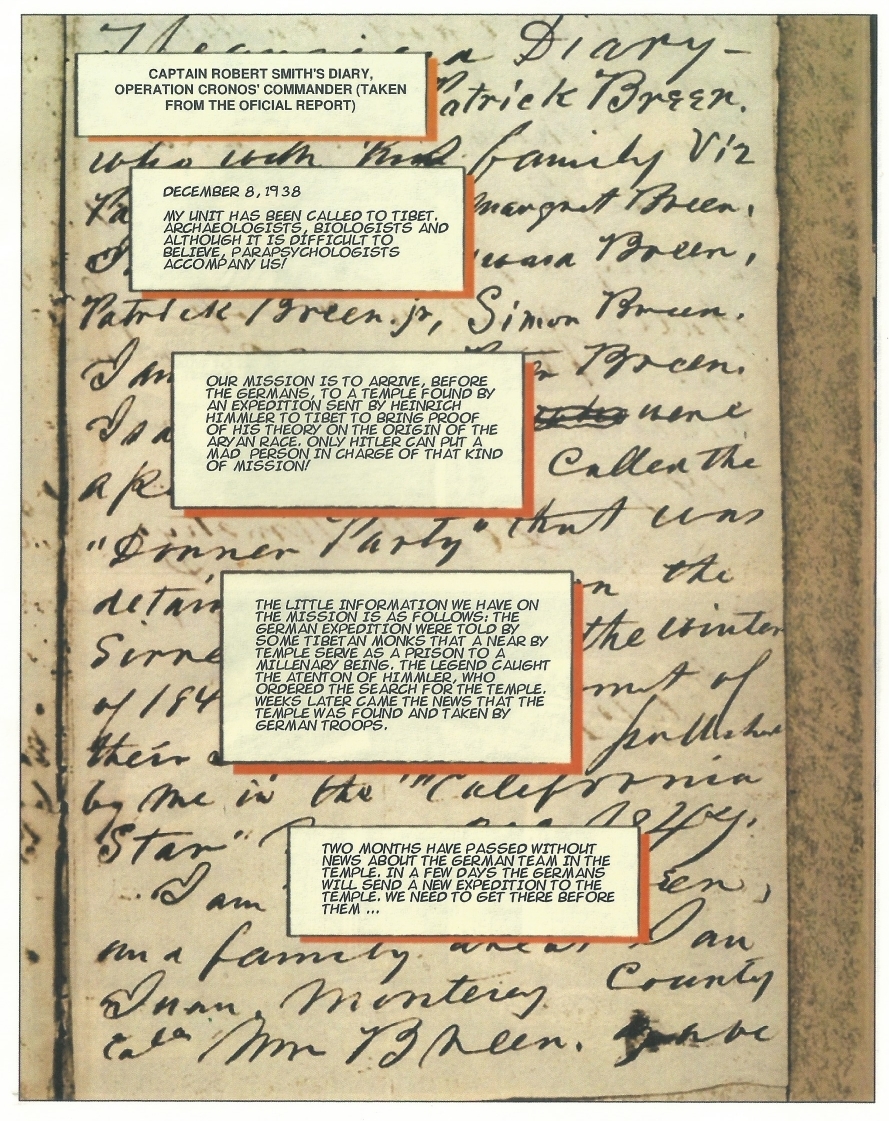 a Diary—
CAPTAIN ROBERT SMITH'S DIARY,
OPERATION CRONOS' COMMANDER (TAKEN
FROM THE OFICIAL REPORT)
Patrick Breen.
who with family Viz
DECEMBER 8, 1938
MY UNIT HAS BEEN CALLED TO TIBET.
ARCHAEOLOGISTS, BIOLOGISTS AND
ALTHOUGH IT IS DIFFICULT TO
BELIEVE, PARAPSYCHOLOGISTS
ACCOMPANY US!
Margret Breen,
Breen,
Patrick Breen. jr, Simon Breen.
I am Breen.
OUR MISSION IS TO ARRIVE, BEFORE
THE GERMANS, TO A TEMPLE FOUND BY
AN EXPEDITION SENT BY HEINRICH
HIMMLER TO TIBET TO BRING PROOF
OF HIS THEORY ON THE ORIGIN OF THE
ARYAN RACE. ONLY HITLER CAN PUT A
MAD PERSON IN CHARGE OF THAT KIND
OF MISSION!
were
a Called the
"Donner Party" that was
the
THE LITTLE INFORMATION WE HAVE ON
THE MISSION IS AS FOLLOWS: THE
GERMAN EXPEDITION WERE TOLD BY
SOME TIBETAN MONKS THAT A NEAR BY
TEMPLE SERVE AS A PRISON TO A
MILLENARY BEING. THE LEGEND CAUGHT
THE ATENTON OF HIMMLER, WHO
ORDERED THE SEARCH FOR THE TEMPLE.
WEEKS LATER CAME THE NEWS THAT THE
TEMPLE WAS FOUND AND TAKEN BY
GERMAN TROOPS.
the winter
of 184 of
their
by me in the "California
Star"
TWO MONTHS HAVE PASSED WITHOUT
NEWS ABOUT THE GERMAN TEAM IN THE
TEMPLE. IN A FEW DAYS THE GERMANS
WILL SEND A NEW EXPEDITION TO THE
TEMPLE. WE NEED TO GET THERE BEFORE
THEM ...
I am
and family
Juan, Monterey County
Wm Breen. gave